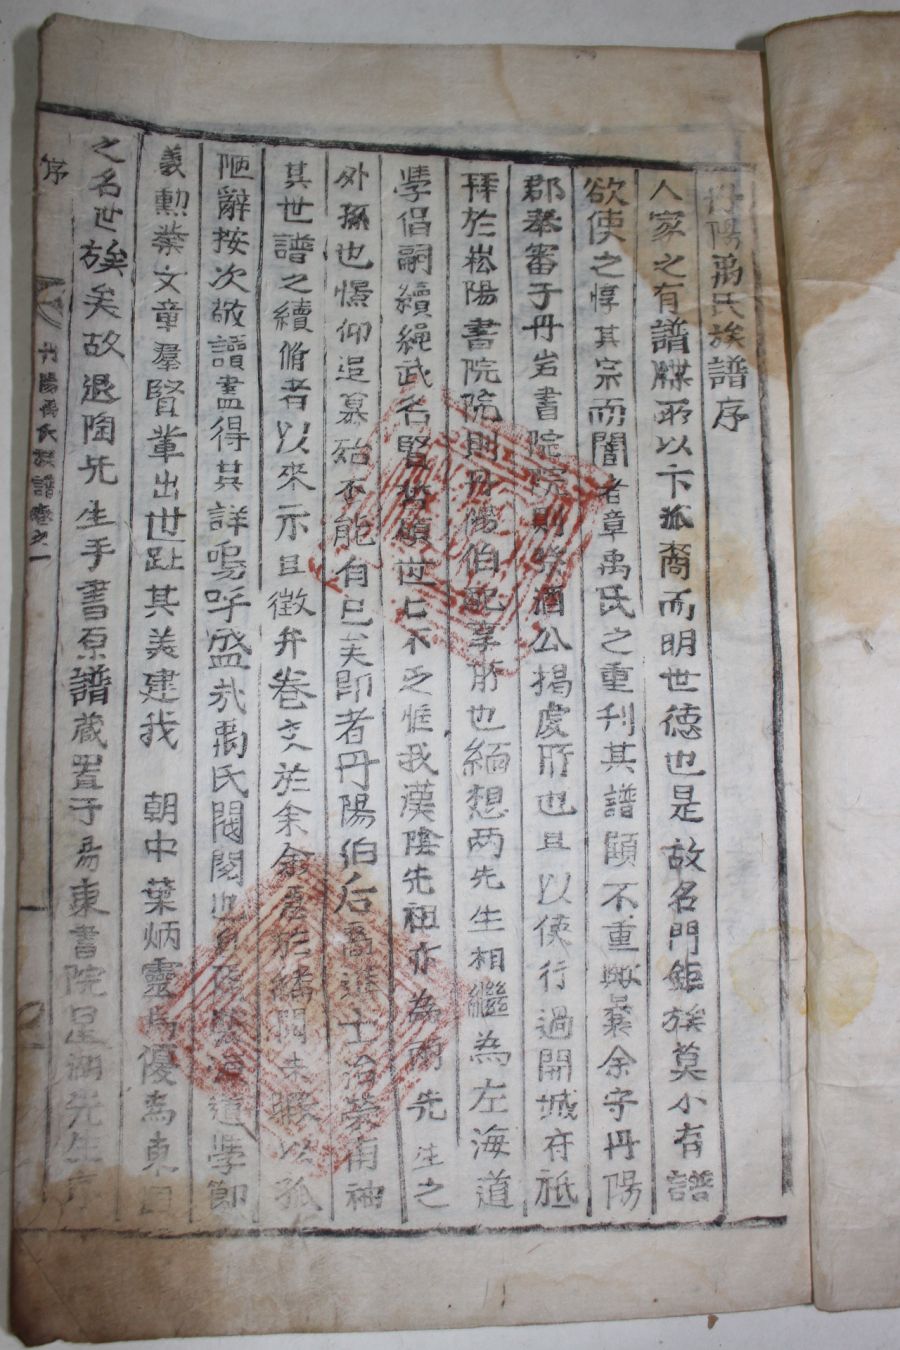 陽禹氏族譜序
人家之有譜牒所以卞派裔而明世德也是故名門鉅族莫不有譜
欲使之惇其宗而闇者章禹氏之重刊其譜顧不重歟曩余守丹陽
郡奉審于丹岩書院院則祭酒公揭虔所也且以使行過開城府祗
拜於崧陽書院院則丹陽伯配享所也緬想两先生相繼為左海道
學倡嗣續繩武名賢世不乏惟我漢陰先祖亦為兩先生之
外孫也憬仰追慕殆不能自已矣即者丹陽伯后裔進士治榮甫袖
其世譜之續修者以來示且徵弁卷文於余余於繙閱未暇以孤
陋辭按次敬讀盡得其詳嗚呼盛哉禹氏閥閱也道學節
義勳業文章羣賢輩出世趾其美建我 朝中葉炳靈為優為東國
之名世族矣故退陶先生手書原譜蔵置于易東書院星湖先生序
序
丹陽禹氏族譜卷之一